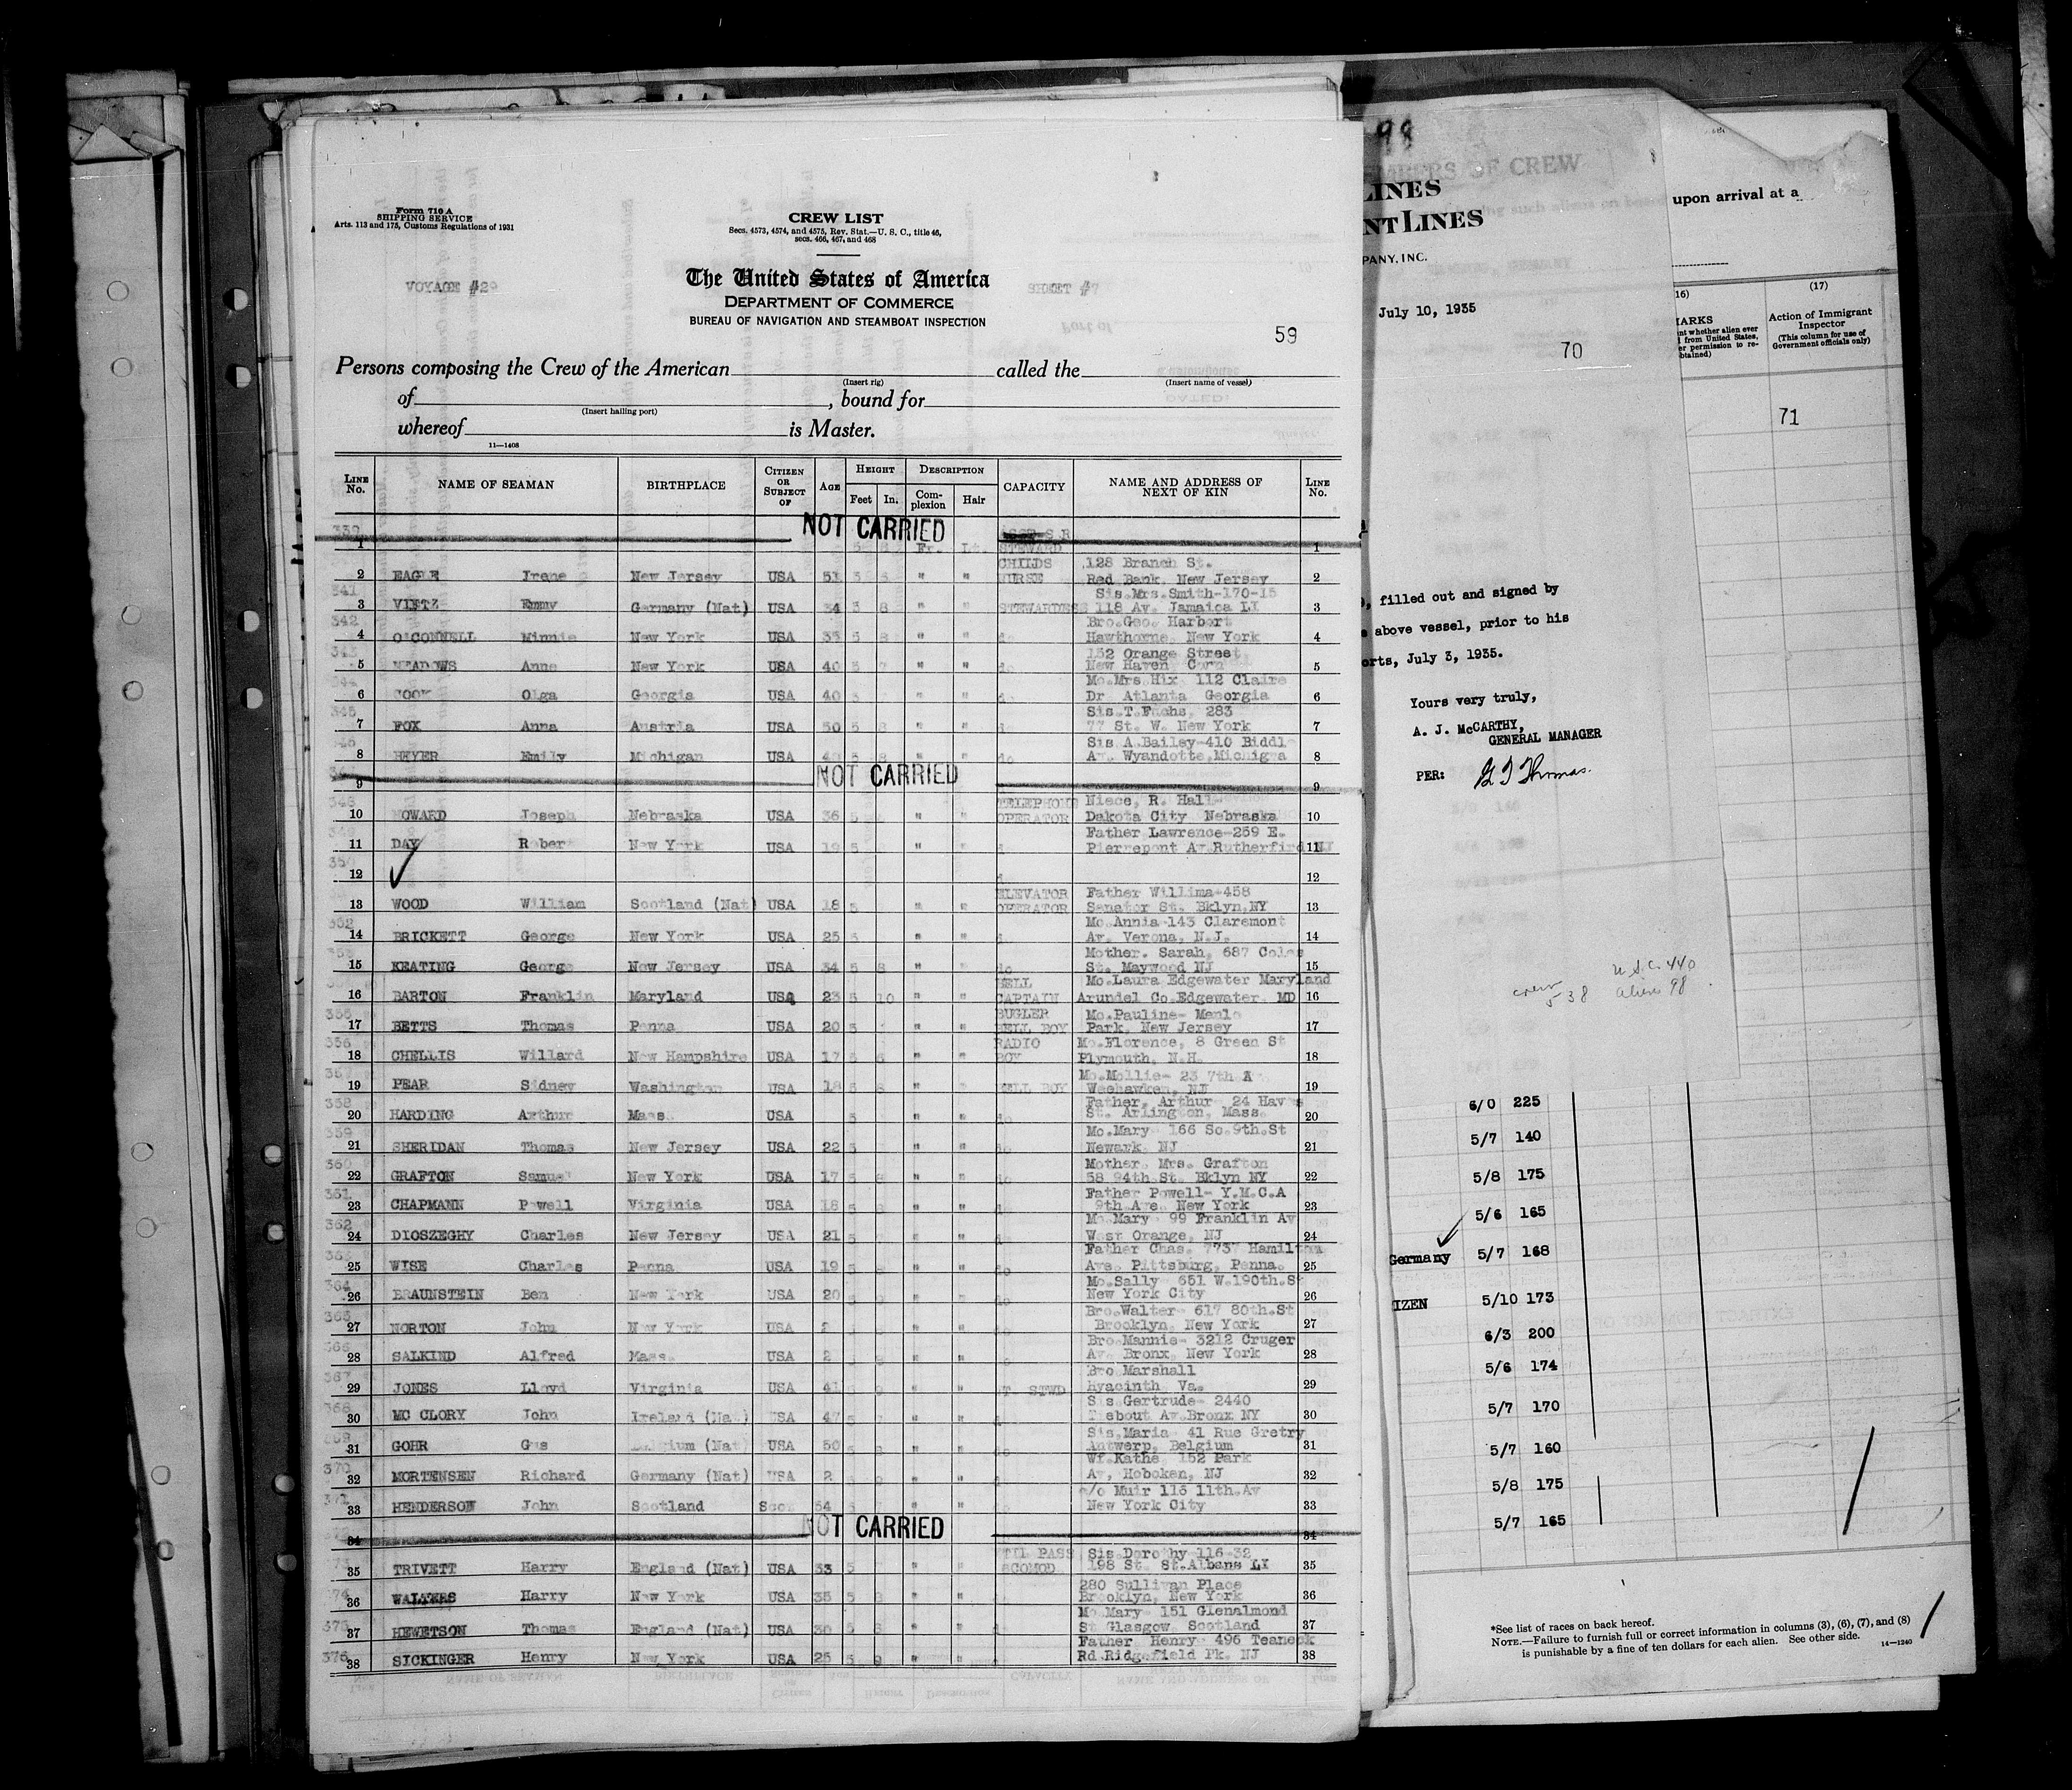 Form 710 A
SHIPPING SERVICE
Arts. 113 and 175, Customs Regulations of 1931
CREW LIST
Secs. 4573, 4574, and 4575, Rev. Stat.—U. S. C., title 46,
secs. 466, 467, and 468
VOYAGE #29
The United States of America
SHEET #7
DEPARTMENT OF COMMERCE
BUREAU OF NAVIGATION AND STEAMBOAT INSPECTION
59
Persons composing the Crew of the American called the
(Insert rig) (Insert name of vessel)
of , bound for
(Insert hailing port)
whereof is Master.
11—1408
LINE No. NAME OF SEAMAN BIRTHPLACE CITIZEN OR SUBJECT OF AGE HEIGHT Feet In. DESCRIPTION Complexion Hair CAPACITY NAME AND ADDRESS OF NEXT OF KIN LINE No.
339 NOT CARRIED
1 STEWARD 1
CHILDS 128 Branch St.
2 EAGLE Irene New Jersey USA 51 " " NURSE Red Bank, New Jersey 2
341 Sis.Mrs.Smith-170-15
3 VIETZ Emmy Germany (Nat) USA 34 " " STEWARDESS 118 Av. Jamaica LI 3
342 Bro.Geo. Harbort
4 O'CONNELL Minnie New York USA 35 5 " " do Hawthorne, New York 4
343 152 Orange Street
5 MEADOWS Anne New York USA 40 " " do New Haven Conn 5
344 Mo.Mrs Hix 112 Claire
6 COOK Olga Georgia USA 40 " " do Dr Atlanta Georgia 6
345 Sis.T.Fuchs, 283
7 FOX Anna Austria USA 50 5 8 " " do 77 St. W. New York 7
346 Sis A.Bailey-410 Biddl
8 HEYER Emily Michigan USA " " do Av. Wyandotte,Michigna 8
NOT CARRIED
9 9
348 TELEPHONE Niece, R. Hall
10 HOWARD Joseph Nebraska USA 36 5 " " OPERATOR Dakota City Nebraska 10
349 Father Lawrence-259 E.
11 DAY Rober New York USA 19 5 " " Pierrepont Av.Rutherfird NJ 11
350
12 12
ELEVATOR Father Willima-458
13 WOOD William Scotland (Nat) USA 18 5 " " OPERATOR Senator St. Bklyn.NY 13
352 Mo.Annia-143 Claremont
14 BRICKETT George New York USA 25 5 " " Av. Verona, N.J. 14
353 Mother. Sarah, 687 Coles
15 KEATING George New Jersey USA 34 5 8 " " do St. Maywood NJ 15
BELL Mo.Laura Edgewater Maryland
16 BARTON Franklin Maryland USA 23 5 10 " " CAPTAIN Arundel Co.Edgewater, MD 16
355 BUGLER Mo.Pauline- Menlo
17 BETTS Thomas Penna USA 20 5 " " BELL BOY Park, New Jersey 17
356 RADIO Mo.Florence, 8 Green St
18 CHELLIS Willard New Hampshire USA 17 5 6 " " BOY Plymouth, N.H. 18
357 Mo.Mollie- 23 7th A
19 PEAR Sidney Washington USA 18 5 8 " " BELL BOY Weehawken, NJ 19
358 Father, Arthur- 24 Hav
20 HARDING Arthur Mass. USA 5 " " do St. Arlington, Mass. 20
359 Mo.Mary- 166 So.9th.St
21 SHERIDAN Thomas New Jersey USA 22 5 " " do Newark, NJ 21
360 Mother, Mrs. Grafton
22 GRAFTON Samue USA New York 17 5 8 " " do 58 94th.St. Bklyn NY 22
361 Father Powell- Y.M.C.A
23 CHAPMANN Powell Virginia USA 18 5 " " 9th.Ave. New York 23
362 Mo Mary- 99 Franklin Av
24 DIOSZEGHY Charles New Jersey USA 21 5 " " West Orange, NJ 24
363 Father Chas. 7737 Hamilton
25 WISE Charles Penna USA 19 5 8 " " do Ave. Pittsburg, Penna. 25
364 Mo.Sally- 651 W.190th.St
26 BRAUNSTEIN Ben New York USA 20 5 9 " " do New York City 26
365 Bro.Walter- 617 80th.St
27 NORTON John New York USA 2 " " do Brooklyn, New York 27
366 Bro.Mannie- 3212 Cruger
28 SALKIND Alfred Mass. USA 2 " " Av. Bronx, New York 28
367 Bro Marshall
29 JONES Lloyd Virginia USA 41 " " STWD Hyacinth Va. 29
368 Sis Gertrude- 2440
30 MC CLORY John Ireland (Nat) USA 47 5 " " Tiebout Av.Bronx NY 30
369 Sis.Maria- 41 Rue Gretry
31 GOHR Gus Belgium (Nat) USA 50 5 " " do Antwerp, Belgium 31
370 Wf.Kathe, 152 Park
32 MORTENSEN Richard Germany (Nat) USA 2 " " Av, Hoboken, NJ 32
371 c/o Muir 116 11th.Av
33 HENDERSON John Scotland Scot 54 5 " " New York City 33
NOT CARRIED
34 34
PASS Sis.Dorothy-116-32
35 TRIVETT Harry England (Nat) USA 33 5 " " 198 St. St.Albans LI 35
374 280 Sullivan Place
36 WALTERS Harry New York USA 35 5 " " Brooklyn, New York 36
375 Mo Mary- 151 Glenalmond
37 HEWETSON Thomas England (Nat) USA 30 5 8 " " St Glasgow Scotland 37
376 Father Henry- 496 Teaneck
38 SICKINGER Henry New York USA 25 5 9 " " Rd Ridgefield Pk. NJ 38
MEMBERS OF CREW
LINES
NT LINES
PANY, INC.
July 10, 1935
70
, filled out and signed by
above vessel, prior to his
orts, July 3, 1935.
Yours very truly,
A. J. McCARTHY,
GENERAL MANAGER
PER: G J Thomas.
crew 538
U.S.C. 440
aliens 98
upon arrival at a
16) (17)
MARKS Action of Immigrant Inspector
(This column for use of Government officials only)
nt whether alien ever
from United States,
er permission to re-
obtained)
71
6/0 225
5/7 140
5/8 175
5/6 165
Germany 5/7 168
IZEN 5/10 173
6/3 200
5/6 174
5/7 170
5/7 160
5/8 175
5/7 165
*See list of races on back hereof.
NOTE.—Failure to furnish full or correct information in columns (3), (6), (7), and (8)
is punishable by a fine of ten dollars for each alien. See other side. 14—1240